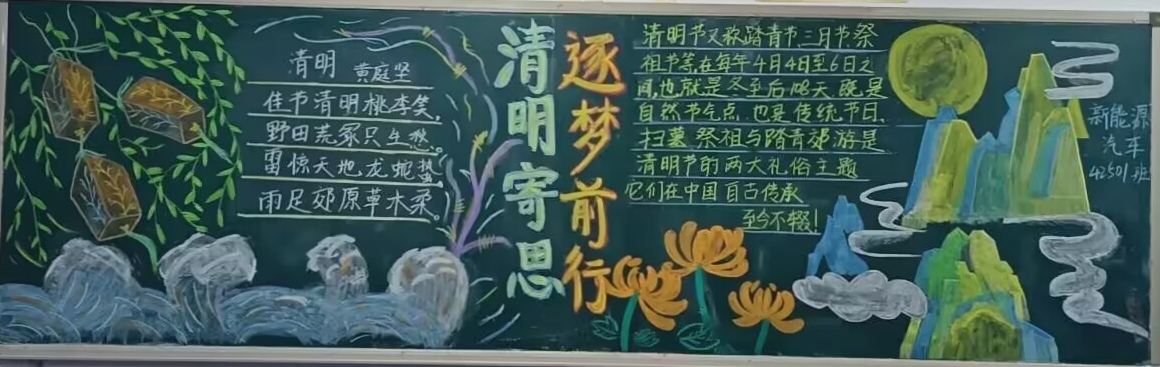 清明 黄庭坚
佳节清明桃李笑,
野田荒冢只生愁。
雷惊天地龙蛇蛰,
雨足郊原草木柔。
清明寄思
逐梦前行
清明节又称踏青节三月节祭
祖节等,在每年4月4日至6日之
间,也就是冬至后108天既是
自然节气点也是传统节日,
扫墓祭祖与踏青郊游是
清明节的两大礼俗主题
它们在中国自古传承
至今不辍!
新能源
汽车
42501班